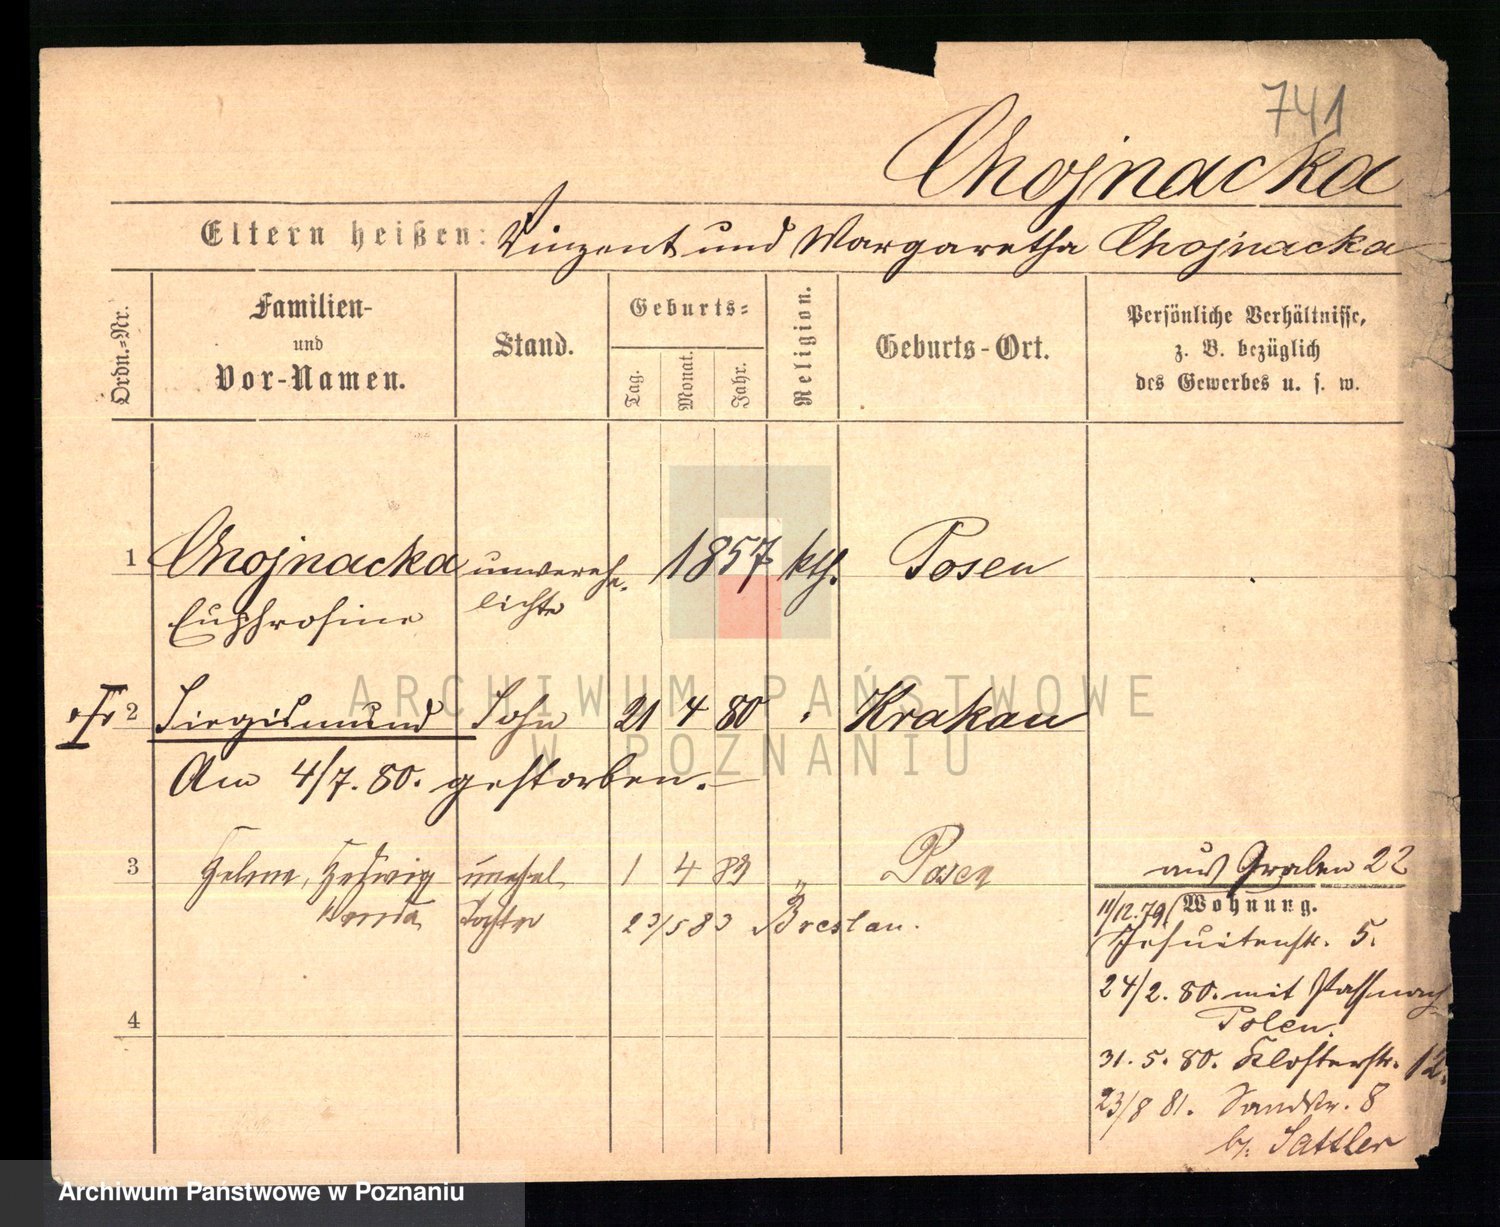 741
Chojnacka
Eltern heißen: Vinzent und Margaretha Chojnacka
Ordn.-Nr.
Familien-
und
Vor-Namen.
Stand.
Geburts-
Tag.
Monat.
Jahr.
Religion.
Geburts-Ort.
Persönliche Verhältnisse,
z. B. bezüglich
des Gewerbes u. s. w.
1 Chojnacka unverehe- 1857 kth. Posen
Euphrosine lichte
2 Siegismund Sohn 21 4 80 " Krakau
Am 4/7. 80. gestorben.
3 Helene, Hedwig unehel. 1 4 83 " Posen
Wanda Tochter 23/5 83 Breslau.
4
aus Graben 22
Wohnung.
11/12.79. Jesuitenstr. 5.
24/2. 80. mit Paß nach
Polen.
31. 5. 80. Klosterstr. 12.
23/8 81. Sandstr. 8
b. Sattler
ARCHIWUM PAŃSTWOWE
W POZNANIU
Archiwum Państwowe w Poznaniu